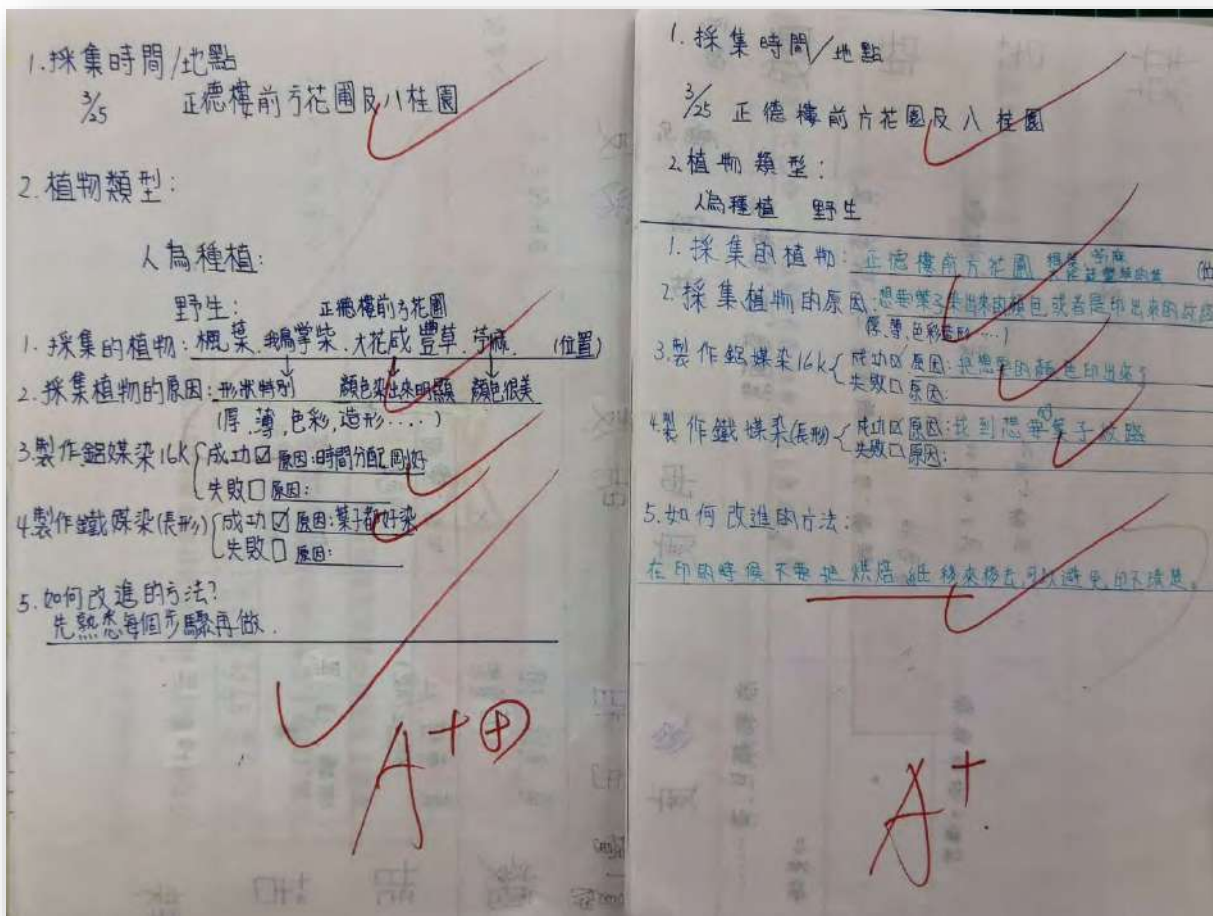 1.採集時間/地點
3/25 正德樓前方花圃及八桂園
2.植物類型:
人為種植:
野生: 正德樓前方花圃
1.採集的植物:楓葉、鵝掌柴、大花咸豐草、 (位置)
2.採集植物的原因:形狀特別 顏色染出來明顯 顏色很美
(厚、薄、色彩、造形....)
3.製作鋁媒染16K 成功☑ 原因:時間分配剛好
失敗☐ 原因:
4.製作鐵媒染(長形) 成功☑ 原因:葉子都好染
失敗☐ 原因:
5.如何改進的方法?
先熟悉每個步驟再做.
A++
1.採集時間/地點
3/25 正德樓前方花圃及八桂園
2.植物類型:
人為種植 野生
1.採集的植物:正德樓前方花圃
2.採集植物的原因:想要葉子染出來的顏色或者是印出來的紋路
(厚、薄、色彩造形....)
3.製作鋁媒染16k 成功☑ 原因:把想要的顏色印出來了
失敗☐ 原因:
4.製作鐵媒染(長形) 成功☑ 原因:找到想要的葉子紋路
失敗☐ 原因:
5.如何改進的方法:
在印的時候不要把烘焙紙移來移去,可以避免印不清楚。
A+